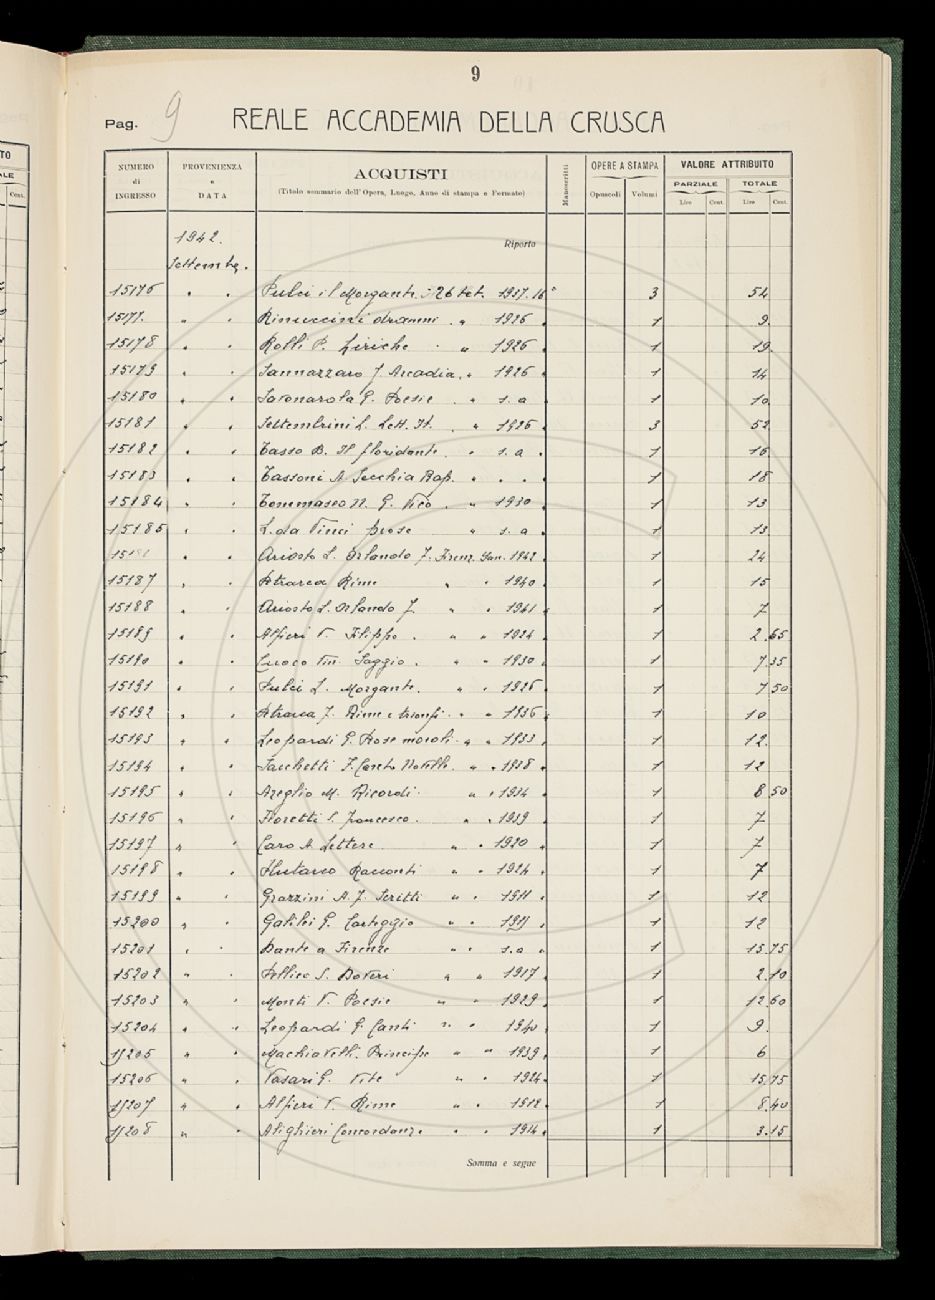 9
Pag. 9 REALE ACCADEMIA DELLA CRUSCA
NUMERO di INGRESSO
PROVENIENZA e DATA
ACQUISTI
(Titolo sommario dell'Opera, Luogo, Anno di stampa e Formato)
Manoscritti
OPERE A STAMPA
Opuscoli Volumi
VALORE ATTRIBUITO
PARZIALE TOTALE
Lire Cent. Lire Cent.
1942. Riporto
Settembre.
15176 " " Pulci il Morgante 1937. 16° 3 54
15177. " " Rinuccini drammi . " 1926 1 9.
15178 " " Rolli P. Liriche . " 1926 1 19.
15179 " " Sannazzaro J. Arcadia. " 1926 1 14
15180 " " Savonarola G. Poesie . " s. a 1 10
15181 " " Settembrini L. Lett. It. . " 1926 3 52
15182 " " Tasso B. Il floridante. " s. a. 1 16
15183 " " Tassoni A Secchia Rap. " . . 1 18
15184 " " Tommaseo N. G. Vico . " 1930 1 13
15185 " " L. da Vinci prose " s. a 1 13
151 " " Ariosto L. Orlando F. Firenz. San. 1942 1 24
15187 " " Petrarca Rime " " 1940 1 15
15188 " " Ariosto L. Orlando F " " 1941 1 7
15189 " " Alfieri V. Filippo . " " 1924 1 2.65
15190 " " Cuoco Vin. Saggio . " " 1930 1 7.35
15191 " " Pulci L. Morgante. " " 1926 1 7 50
15192 " " Petrarca F. Rime e trionfi . " " 1936 1 10
15193 " " Leopardi G. Prose morali. " " 1933 1 12.
15194 " " Sacchetti F. Novelle. " " 1 12
15195 " " Azeglio M. Ricordi. " " 1934 1 8 50
15196 " " Fioretti S. Francesco. " " 1939 1 7
15197 " " Caro A. Lettere. " " 1920 1 7
15198 " " Plutarco Racconti " " 1924 1 7
15199 " " Grazzini A. F. Scritti " " 1911 1 12
15200 " " Galilei G. Carteggio " " 1 12
15201 " " Dante a Firenze " " s.a " 1 15.75
15202 " " Pellico S. Doveri " " 1917 1 2.10
15203 " " Monti V. Poesie " " 1929 1 12.60
15204 " " Leopardi G. Canti " " 1940 1 9.
15205 " " Machiavelli. Principe " " 1939 1 6
15206 " " Vasari G. Vite " " 1924 1 15.75
15207 " " Alfieri V. Rime " " 1912 1 8.40
15208 " " Alighieri Concordanze " " 1914 1 3.15
Somma e segue